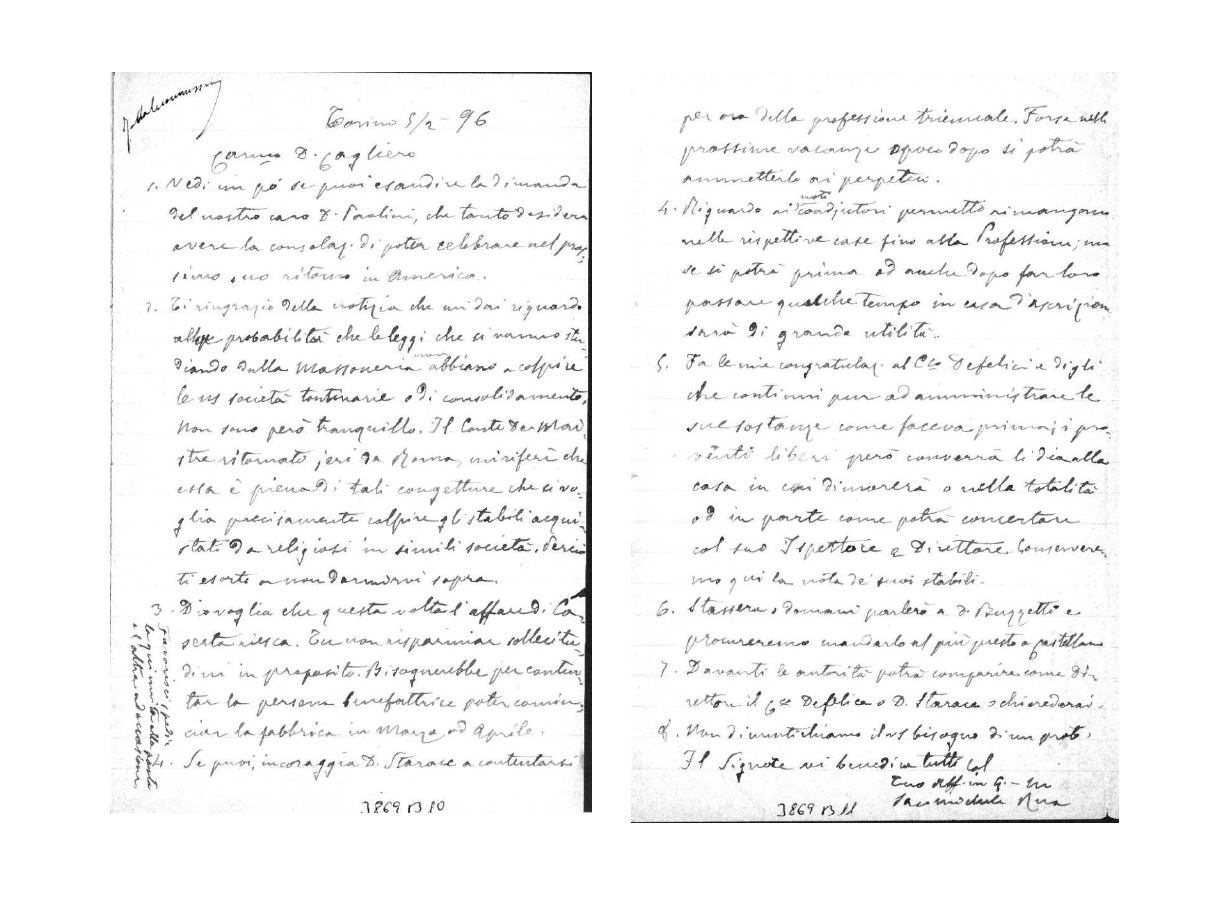 Torino 5/2 - 96
Carmo D. Cagliero
1. Vedi un pó se puoi esaudire la dimanda
del nostro caro D. Paolini, che tanto desidera
avere la consolaz. di poter celebrare nel pros-
simo suo ritorno in America.
2. Ti ringrazio della notizia che mi dai riguardo
alle probabilità che le leggi che si vanno stu-
diando dalla Massoneria non abbiano a colpire
le ns società tontinarie o di consolidamento.
Non sono però tranquillo. Il Conte De Mai-
stre ritornato jeri da Roma, mi riferì che
essa è piena di tali congetture che si vo-
glia precisamente colpire gli stabili acqui-
stati da religiosi in simili società. Perciò
ti esorto a non dormirvi sopra.
3. Dio voglia che questa volta l'affare di Ca-
serta riesca. Tu non risparmiar sollecitu-
dini in proposito. Bisognerebbe per conten-
tar la persona benefattrice poter comin-
ciar la fabbrica in Marzo od Aprile.
4. Se puoi, incoraggia D. Starace a contentarsi
Favorisci spedir
la qui unita alla posta
e l'altra a destinazione
J869 B 10
per ora della professione triennale. Forse nelle
prossime vacanze o poco dopo si potrà
ammetterlo ai perpetui.
4. Riguardo ai noti coadjutori permetto rimangano
nelle rispettive case fino alla Professione; ma
se si potrà prima od anche dopo far loro
passare qualche tempo in casa d'ascrizione
sarà di grande utilità.
5. Fa le mie congratulaz. al Cco Defelici e digli
che continui pur ad amministrare le
sue sostanze come faceva prima; i pro-
venti liberi però converrà li dia alla
casa in cui dimorerà o nella totalità
od in parte come potrà concertare
col suo Ispettore e Direttore. Conservere-
mo qui la nota de' suoi stabili.
6. Stassera o domani parlerò a D. Buzzetti e
procureremo mandarlo al più presto a Castellamo
7. Davanti le autorità potrà comparire come Di-
rettore il Cco Defelice o D. Starace schiarederai.
8. Non dimentichiamo il ns bisogno di un prob.
Il Signore vi benedica tutti col
Tuo aff. in G. e M.
Sac. Michele Rua
J869 B 11